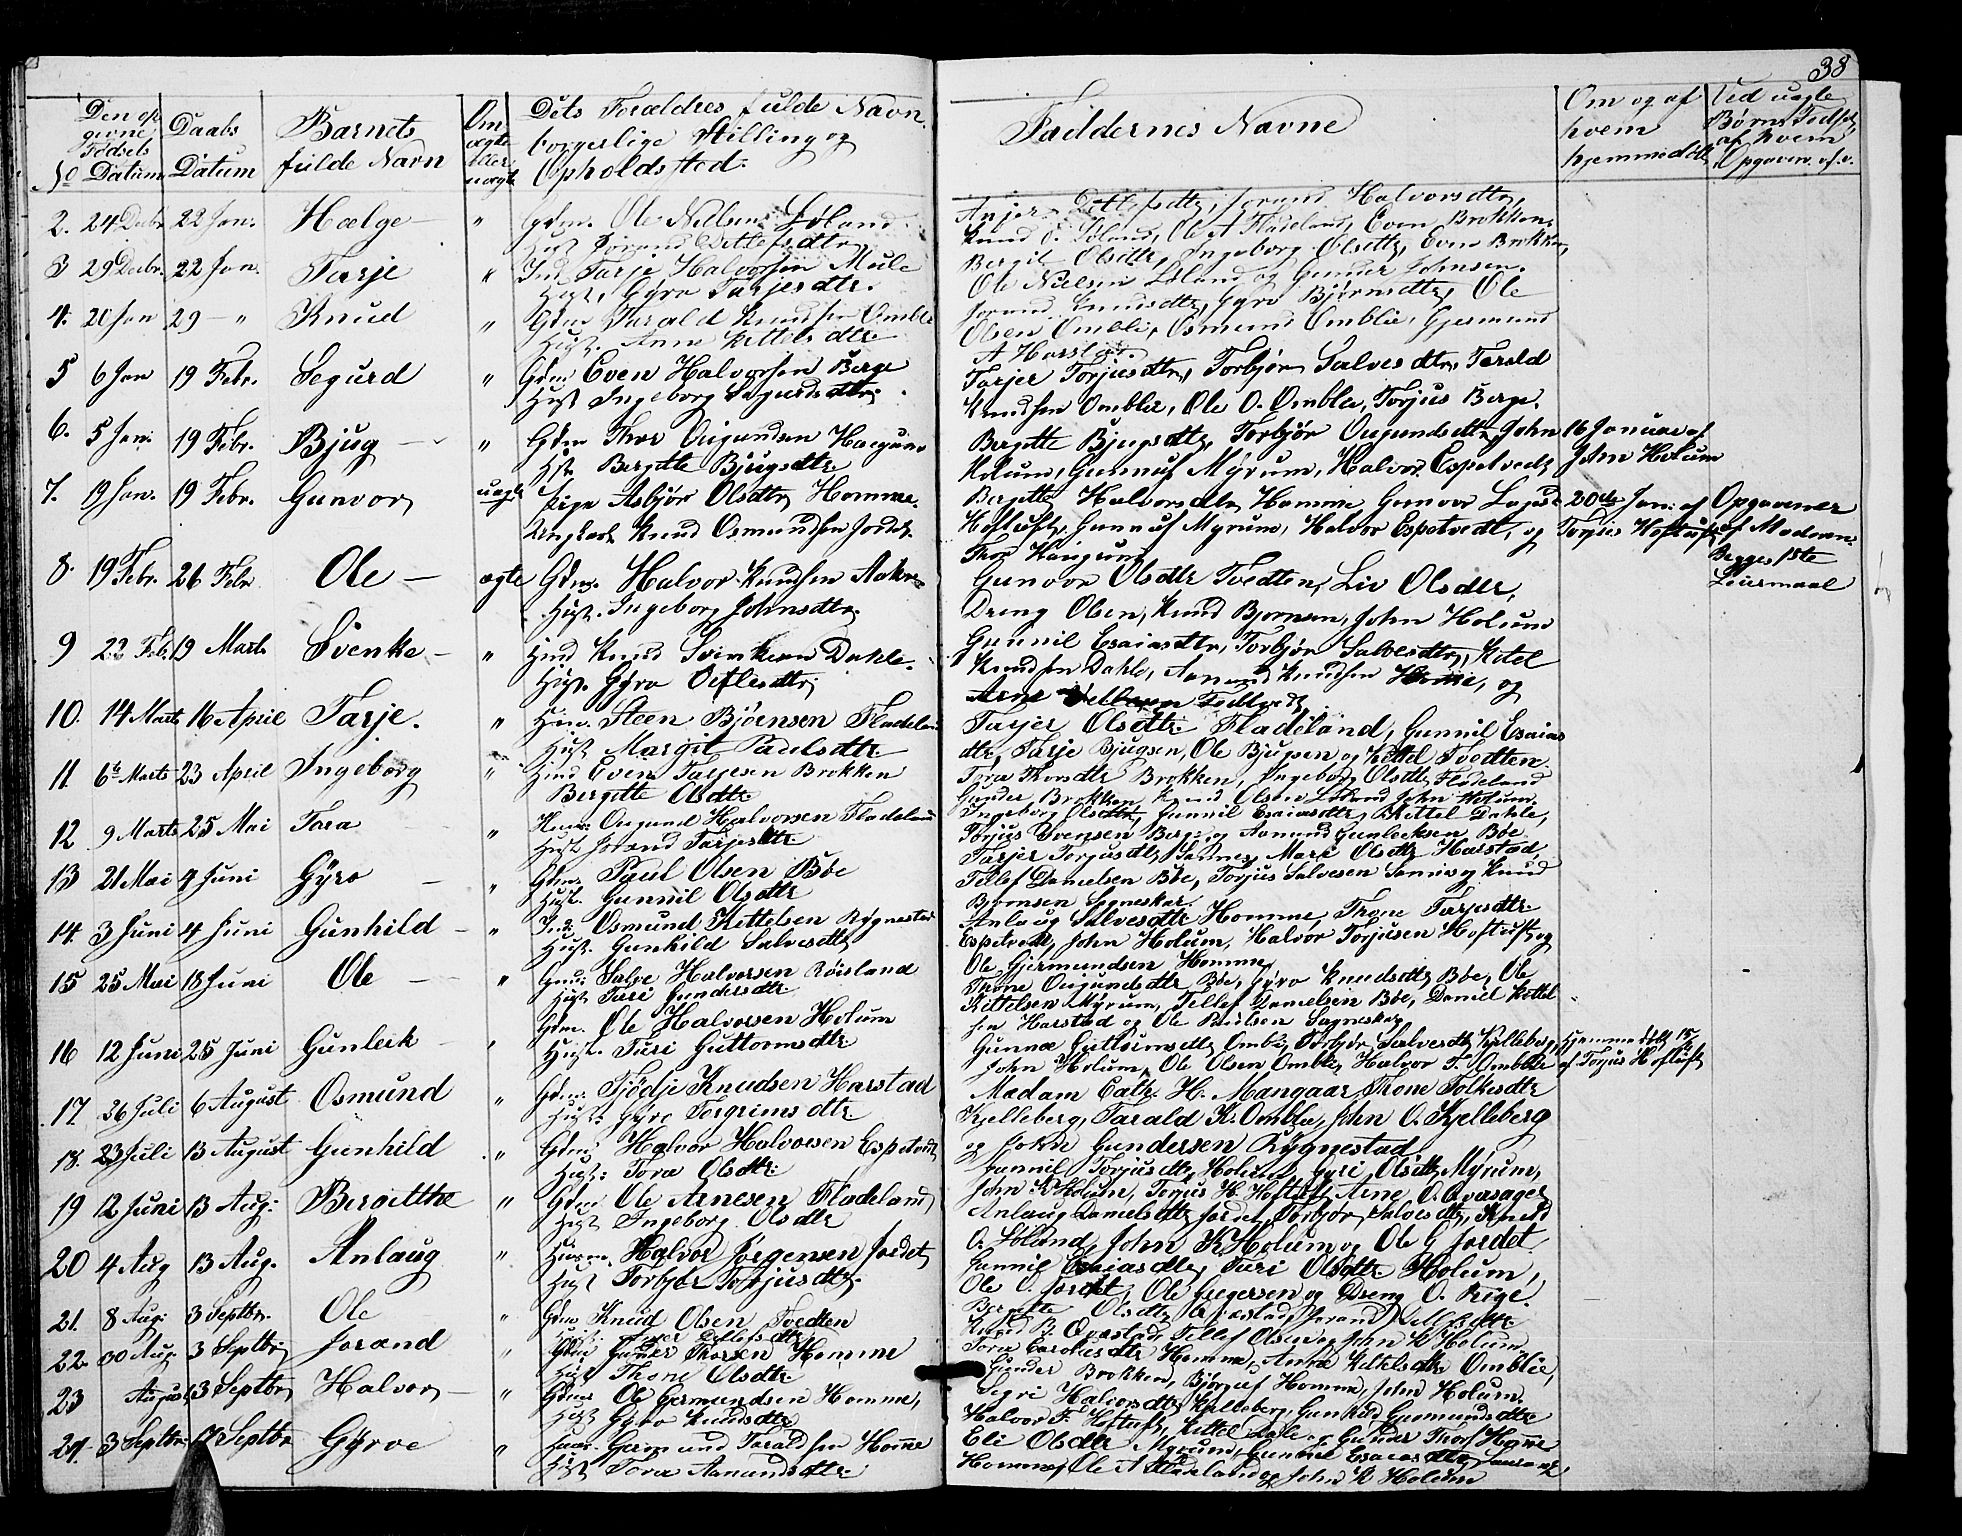 38
Den op givne Fødsels Datum
Daabs Datum
Barnets fulde Navn
Om ægte eller uægte
Dets Forældres fulde Navn, borgerlige Stilling og Opholdsted.
Faddernes Navne
Om og af hvem hjemmedøbt
Ved uægte Børns Fødsel af hvem Opgaven
2. 24 Decbr. 22 Jan. Hælge " Gdm. Ole Nielsen Løland
Hust. Jorand Detlefsdtr.
Jorand Halvorsdtr,
Knud O. Løland, Ole A Fladeland, Even Brokken.
3 29 Decbr. 22 Jan. Tarje " Ind. Tarje Halvorsen Mule
Hust. Gyro Tarjesdtr.
Bergit Olsdtr, Ingeborg Olsdtr, Even Brokken,
Ole Nielsen Løland og Gunder Johnsen.
4. 20 Jan 29 - " Knud " Gdm Tarald Knudsen Omblie
Hust. Anne Kittelsdtr.
Jorand Knudsdtr, Gyro Bjørnsdtr, Ole
Olsen Omblie, Osmund Omblie, Gjermund
A Harstad.
5 6 Jan 19 Febr. Segurd " Gdm Even Halvorsen Berge
Hust Ingeborg Segurdsdtr.
Tarjer Torjusdtr, Torbjør Salvesdtr, Tarald
Knudsen Omblie, Ole O. Omblie, Torjus Berge.
6. 5 Jan. 19 Febr. Bjug " Gdm Thor Ougundsen
Hst. Bergitte Bjugsdtr.
Bergitte Bjugsdtr, Torbjør Ougundsdtr, John
Holum, Gunnuf Myrum, Halvor Espetvedt
16 Januar af
John Holum
7. 19 Jan. 19 Febr. Gunvor uægte Pige Asbjør Olsdtr Homme.
Ungkarl Knud Osmundsen Jordet.
Bergitte Halvorsdtr Homme Gunvor
Hoftuft, Gunnuf Myrum, Halvor Espetvedt, og
Thor
20de Jan. af
Torjus Hoftuft
Opgavener
af Moderen.
Begges 1ste
Leiermaal
8. 19 Febr. 26 Febr Ole ægte Gdm. Halvor Knudsen
Hust. Ingeborg Johnsdtr.
Gunvor Olsdtr Tvedten, Liv Olsdtr,
Dreng Olsen, Knud Bjørnsen, John Holum
9 22 Feb. 19 Marts Svenke " Ind Knud Svenkesen Dahle.
Hust. Gyro
Gunnil Esaiasdtr, Torbjør Salvesdtr, Kitel
Knudsen Dahle, Aamund Knudsen Homme, og
10. 14 Marts 16 April Tarje. " Steen Bjørnsen Fladeland
Hust Margit
Tarjer Olsdtr Fladeland, Gunnil Esaias
dtr, Tarje Bjugsen, Ole Bjugsen og Kittel Tvedten.
11. 6te Marts 23 April Ingeborg " Ind Even Tarjesen Brokken
Bergitte Olsdtr.
Tora Thorsdtr Brokken, Ingeborg Olsdtr Fladeland
Gunder Brokken, Knud Olsen Løland John Holum.
12 9 Marts 25 Mai Tara " Ougund Halvorsen Fladeland
Hust Jorand Tarjesdtr.
Ingeborg Olsdtr, Gunnil Esaiasdtr, Kittel Dahle,
Torjus Evensen Berge og Aamund Gunleeksen Bøe.
13 21 Mai 4 Juni Gyro " Gdm. Paul Olsen Bøe
Hust. Gunnil Olsdtr
Tarjer Torjusdtr Sannes, Mari Olsdtr Harstad,
Tellef Danielsen Bøe, Torjus Salvesen Sannes og Knud
Bjørnsen
14. 3 Juni 4 Juni Gunhild " Ind. Osmund Kittelsen Rygnestad
Hust. Gunhild Salvesdtr
Anlaug Salvesdtr Homme, Thone Tarjesdtr.
Espetvedt, John Holum, Halvor Torjusen Hoftuft og
Ole Gjermundsen Homme,
15 25 Mai 18 Juni Ole " Gdm. Salve Halvorsen Røisland
Hust Turi Gundersdtr.
Thone Ougundsdtr Bøe, Gyro Knudsdtr Bøe, Ole
Kittelsen Myrum, Tellef Danielsen Bøe, Daniel Kittel
sen Harstad og Ole Paulsen
16 12 Juni 25 Juni Gunleik " Gdm. Ole Halvorsen Holum
Hust. Turi Guttormsdtr.
Gunnæ Guttormsdtr Omblie, Torbjør Salvesdtr Kjelleberg,
John Holum, Ole Olsen Omblie, Halvor T. Omblie
Hjemmedøbt 15/6
af Torjus Hoftuft
17. 26 Juli 6 August Osmund " Gdm. Tjødje Knudsen Harstad
Hust. Gyro Torgrimsdtr.
Madam Cath. H. Mangaar, Thone Folkesdtr
Kjelleberg, Tarald K. Omblie, John O. Kjelleberg
og John Gundersen Rygnestad
18. 23 Juli 13 August Gunhild " Gdm. Halvor Halvorsen Espetvedt
Hust: Tora Olsdtr.
Gunnil Torjusdtr Holum, Gyri Olsdtr Myrum,
John K Holum, Torjus H. Hoftuft, Arne O. Qvarsager
19 12 Juni 13 Aug: Bergitthe " Gdm Ole Arnesen Fladeland
Hust Ingeborg Olsdtr
Anlaug Danielsdtr Jordet, Torbjør Salvesdtr, Knud
O. Løland, John K Holum og Ole G Jordet.
20 4 Aug 13 Aug. Anlaug " Halvor Jørgensen Jordet
Hust Torbjør Torjusdtr.
Gunnil Esaiasdtr, Turi Olsdtr Holum,
Ole O. Jordet, Ole Gregersen og Dreng O. Rige.
21. 8 Aug. 3 Septbr. Ole " Gdm Knud Olsen Tvedten
Detlefsdtr
Bergitte Olsdtr
Knud B. Tellef Olsen og John K Holum.
22. 30 Aug. 3 Septbr. Jorand " Gdm Gunder Thorsen Homme
Hust Thone Olsdtr.
Homme, Anne Kittelsdtr Omblie,
Gunder Brokken, Bjørguf Homme, John Holum.
23 August 3 Septbr. Halvor " Gdm Ole Germundsen Homme,
Hust Gyro Knudsdtr
Segri Halvorsdtr Kjelleberg, Gunhild Germundsdtr
Halvor T. Hoftuft, Kittel Dale og Gunder Thors Homme
24. 3 Septbr. 17 Septbr Gyrve " Germund Taraldsen Homme
Hust Tora Aamundsdtr.
Eli Olsdtr Myrum, Gunnil Esaiasdtr,
Homme, Ole A Fladeland og John K Holum